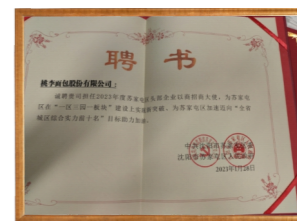 聘书
桃李面包股份有限公司：
诚聘贵司担任2023年度苏家屯区头部企业以商招商大使，为苏家屯
区在“一区三园一板块”建设上实现新突破，为苏家屯区加速迈向“全省
城区综合实力前十名”目标助力加油。
2023年1月28日